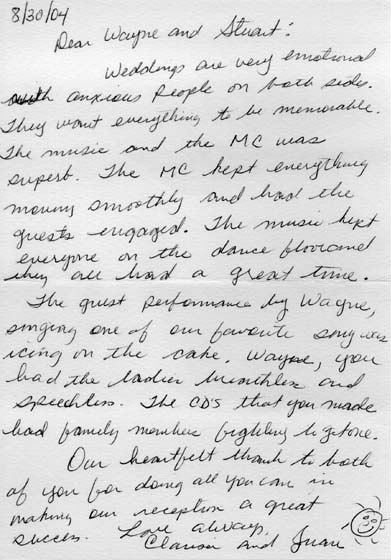 8/30/04
Dear Wayne and Stuart:
Weddings are very emotional
with anxious people on both sides.
They want everything to be memorable.
The music and the MC was
superb. The MC kept everything
moving smoothly and had the
guests engaged. The music kept
everyone on the dance floor and
they all had a great time.
The guest performance by Wayne,
singing one of our favorite songs was
icing on the cake. Wayne, you
had the ladies breathless and
speechless. The CDS that you made
had family members fighting to get one.
Our heartfelt thank to both
of you for doing all you can in
making our reception a great
success. Love always,
and Juan